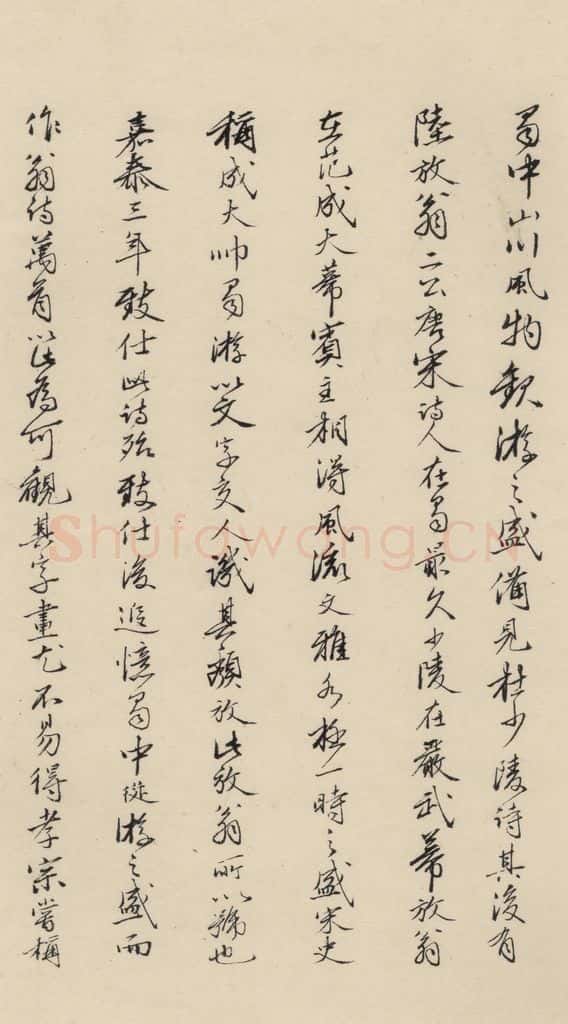 蜀中山川風物欽游之盛備見杜少陵诗其後有
陸放翁二公唐宋诗人在蜀最久少陵在嚴武幕放翁
在范成大幕賓主相得風流文雅各極一時之盛宋史
稱成大帅蜀游以文字交人譏其頹放此放翁所以號也
嘉泰三年致仕此诗殆致仕後追憶蜀中從游之盛而
作翁诗萬首以此為可觀其字畫尤不易得孝宗嘗稱
Shufawang.CN